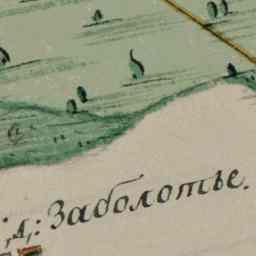 д: Заболотье.